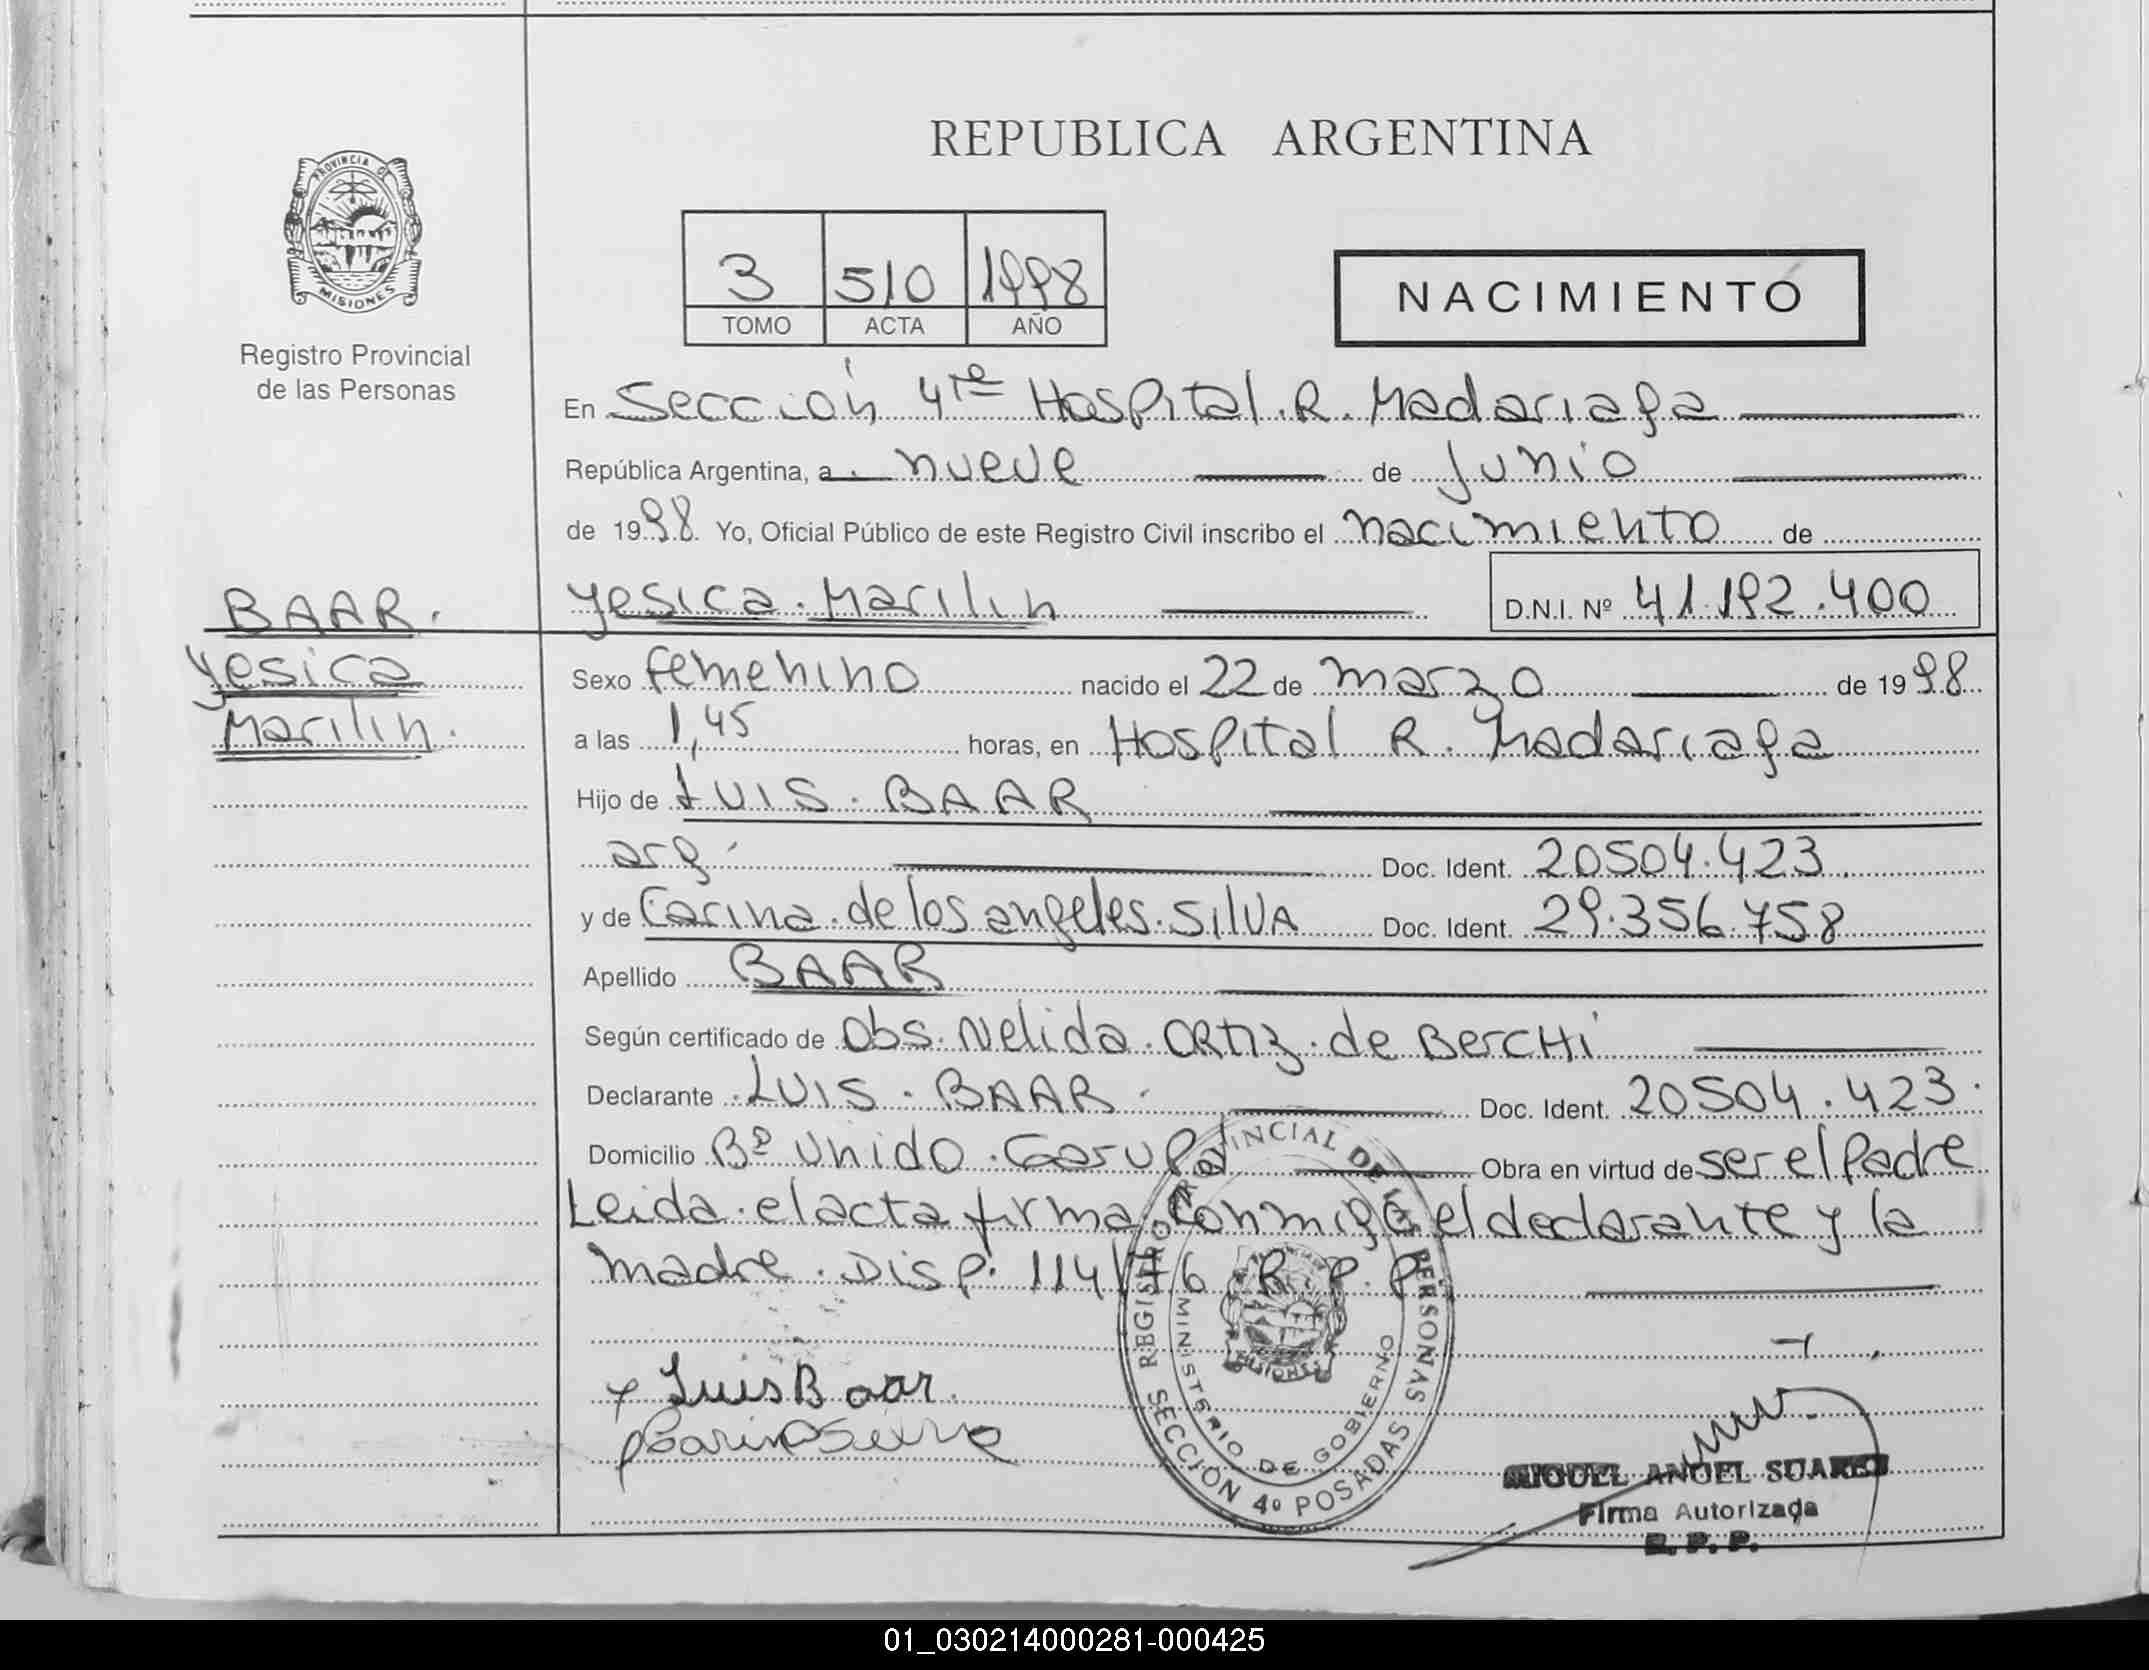 REPUBLICA ARGENTINA
PROVINCIA DE
MISIONES
Registro Provincial
de las Personas
3 510 1998
TOMO ACTA AÑO
NACIMIENTO
En Sección 4ta Hospital R. Madariaga
República Argentina, a nueve de Junio
de 1998 Yo, Oficial Público de este Registro Civil inscribo el nacimiento de
Yesica Marilin D.N.I. Nº 41.192.400
BAAR.
Yesica
Marilin.
Sexo femenino nacido el 22 de marzo de 1998
a las 1,45 horas, en Hospital R. Madariaga
Hijo de LUIS BAAR
arg. Doc. Ident. 20504.423
y de Carina de los angeles SILVA Doc. Ident. 29.356.758
Apellido BAAR
Según certificado de Obs. Nelida Ortiz de Berchi
Declarante LUIS BAAR Doc. Ident. 20504.423.
Domicilio Bº Unido Garupá Obra en virtud de ser el Padre
Leida el acta firma conmigo el declarante y la
madre. Disp. 114/76 R.P.P.
REGISTRO PROVINCIAL DE LAS PERSONAS
MINISTERIO DE GOBIERNO
MISIONES
SECCIÓN 4º POSADAS
Luis Baar.
MIGUEL ANGEL SUAREZ
Firma Autorizada
R. P. P.
01_030214000281-000425